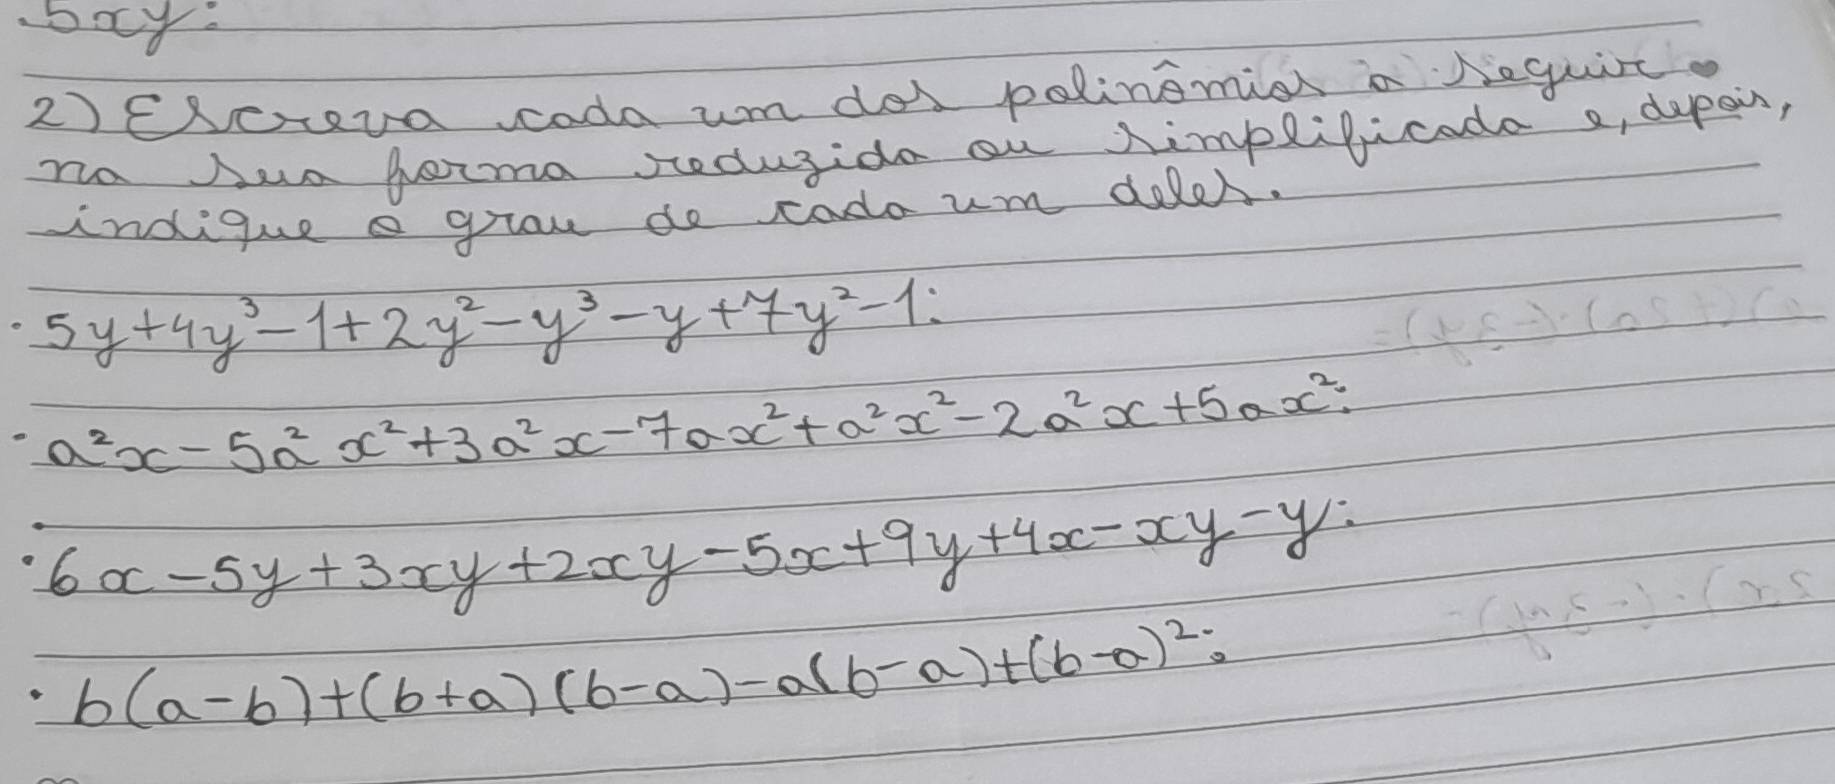 5xy:
2) Escreva cada um dos polinômios a seguir
na sua forma reduzida ou simplificada e, depois,
indique o grau de cada um deles.
· 5y+4y³-1+2y²-y³-y+7y²-1:
· a²x-5a²x²+3a²x-7ax²+a²x²-2a²x+5ax²:
· 6x-5y+3xy+2xy-5x+9y+4x-xy-y:
· b(a-b)+(b+a)(b-a)-a(b-a)+(b-a)²: